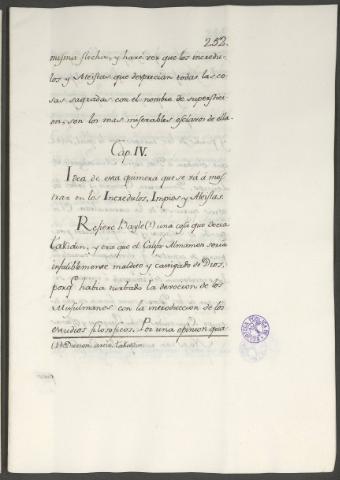 252.
misma flecha, y haré ver que los incredu-
los y Ateistas que desprecian todas las co-
sas sagradas con el nombre de supersticì-
on, son los mas miserables esclavos de ella.
Cap. IV.
Idea de esta quimera que se vá á mos-
trar en los Incredulos, Impios y Ateistas.
Refiere Bayle (1) una cosa que decia
Takidin, y era que el Califa Almamon seria
infaliblemente maldito y castigado de Dios,
porq͂ habia turbado la devocion de los
Musulmanes con la introduccion de los
estudios filosoficos. Por una opinion qua-
(1) Diction. artic. Takiddin.